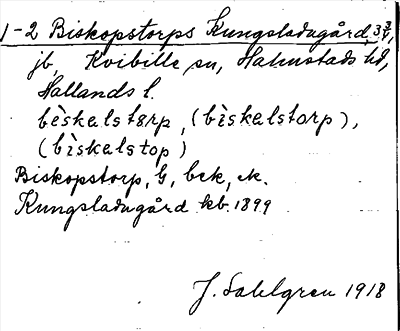 1-2 Biskopstorps Kungsladugård, 3 3/4,
jb, Kvibille sn, Halmstads hd,
Hallands l.
bèskalstərp, (bìskalstorp),
(bìskalstop)
Biskopstorp, G, bck, ek.
Kungsladugård kb. 1899
J. Sahlgren 1918